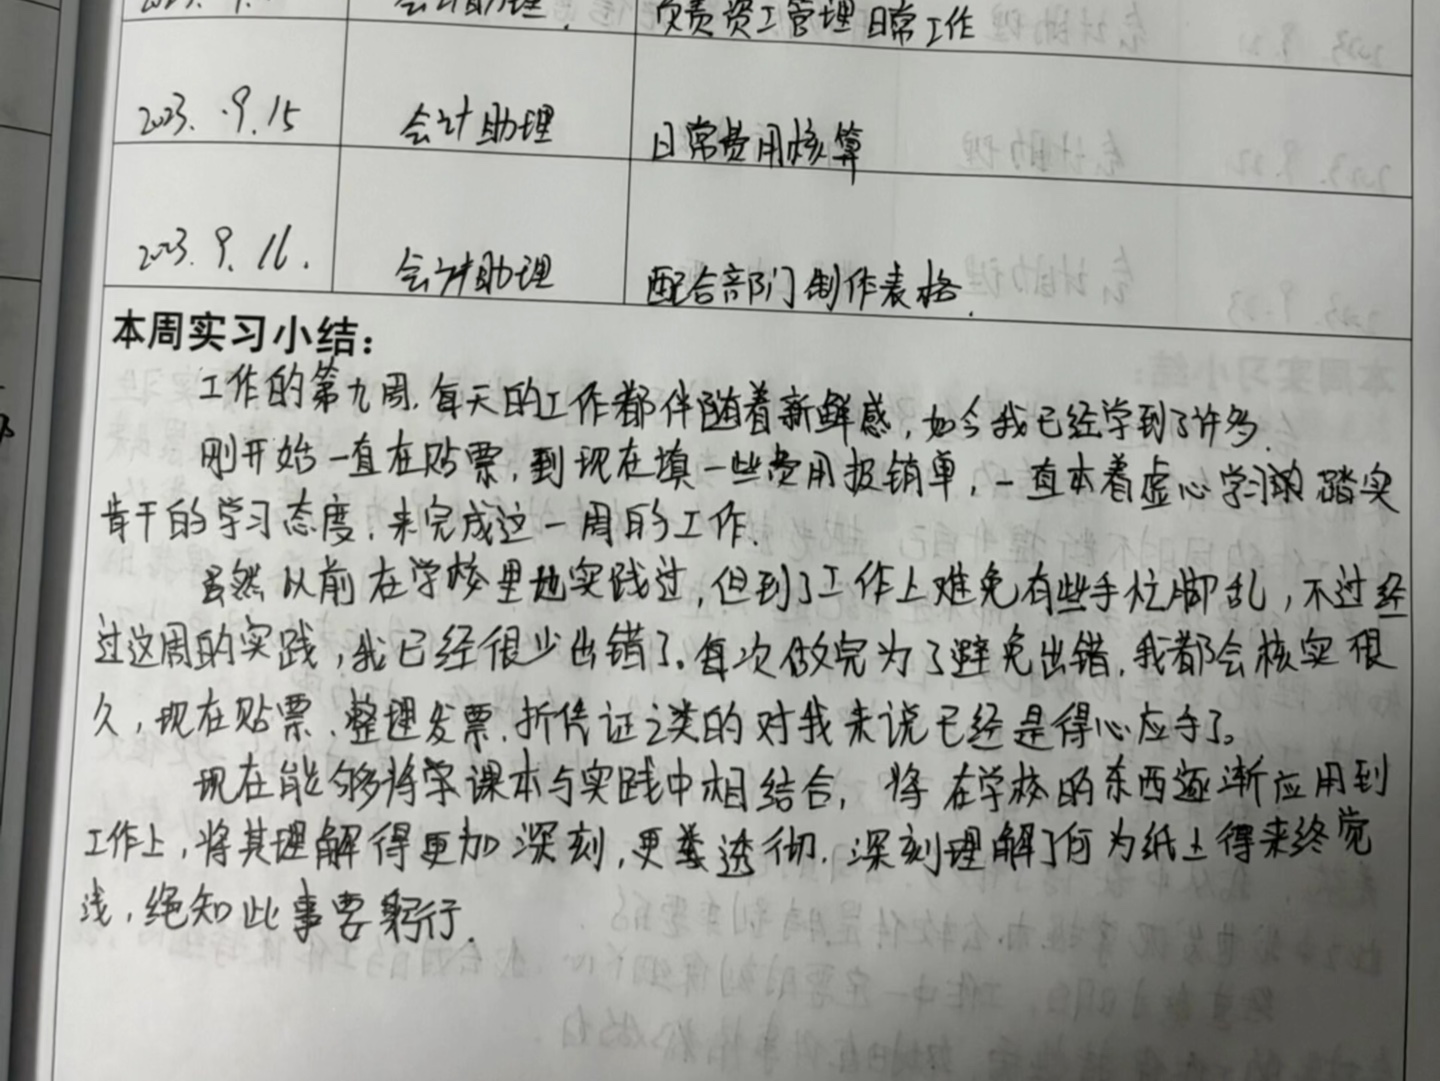 会计助理. 负责资工管理日常工作
2023. 9. 15 会计助理 日常费用核算
2023. 9. 16. 会计助理 配合部门制作表格.
本周实习小结:
工作的第九周,每天的工作都伴随着新鲜感,如今我已经学到了许多.
刚开始一直在贴票,到现在填一些费用报销单,一直本着虚心学习 踏实
肯干的学习态度,来完成这一周的工作.
虽然以前在学校里也实践过,但到了工作上难免有些手忙脚乱,不过经
过这周的实践,我已经很少出错了。每次做完为了避免出错,我都会核实很
久,现在贴票、整理发票、折凭证之类的对我来说已经是得心应手了。
现在能够将学课本与实践中相结合,将在学校的东西逐渐应用到
工作上,将其理解得更加深刻,更 透彻,深刻理解了何为纸上得来终觉
浅,绝知此事要躬行.